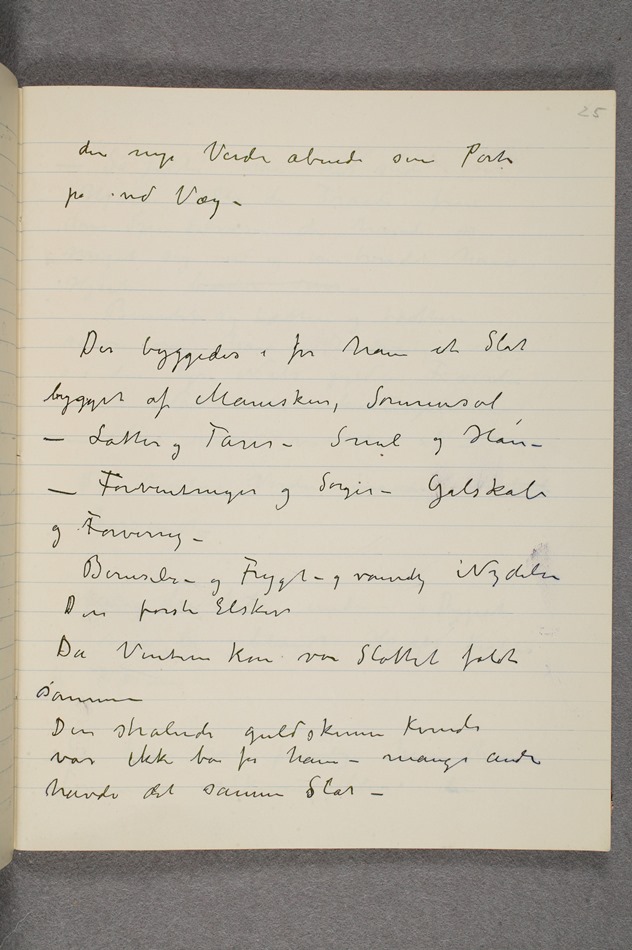 25
den nye Verden åbnede sin Port
på vid Væg –
Der byggedes i for ham et Slot
bygget af Maneskin, Sommersol
– Latter og Tårer – Smil og Hån –
– Forventninger og Sorger – Galskab
og Forvirring –
Beruselse – og Frygt – og vanvidig Nydelse
Den første Elsker
Da Vinteren kom var Slottet faldt
sammen
Den strålende guldskinnende Kvinde
var ikke bare for ham – mange andre
havde det samme Slot –